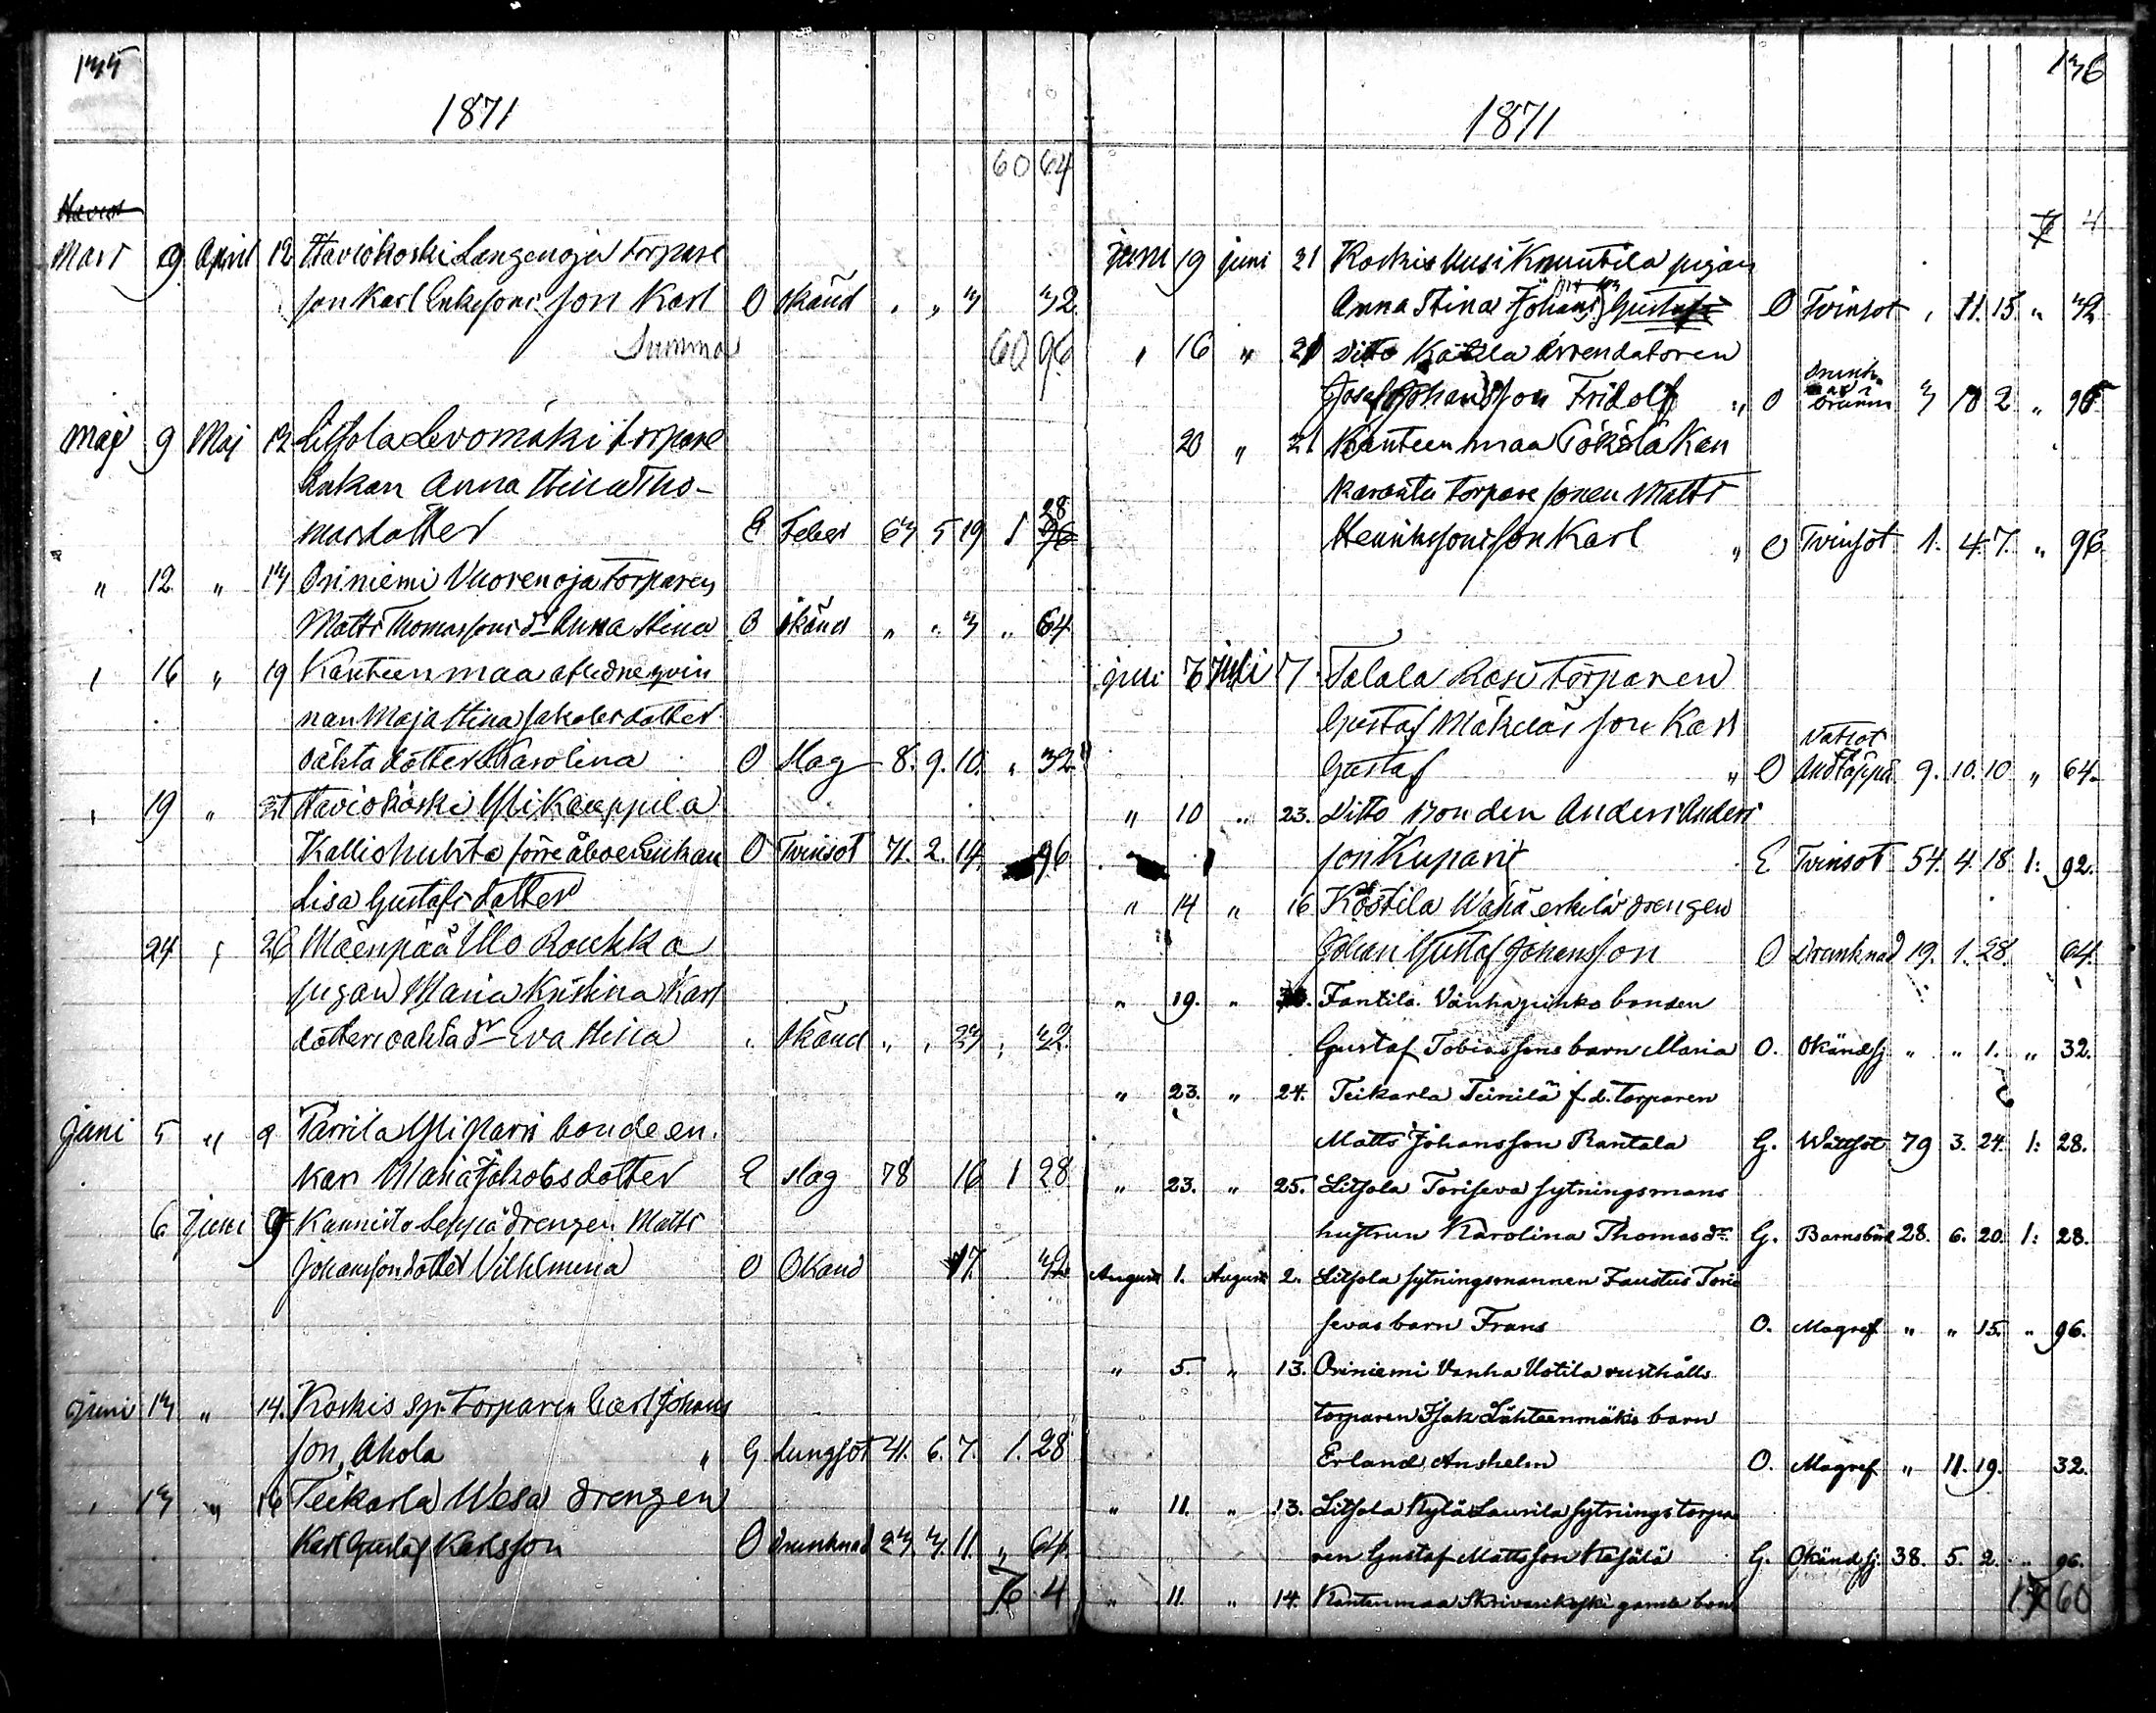 135
1871
60 64
Mars 9 April 12 Haviokoski Langenoja torpare
son Karl Erikssons son Karl O Okänd " " 3 32
Summa 60 96
Maj 9 Maj 12 Litsola Levomäki torpare
Enkan Anna Stina Tho-
masdotter E Feber 63 5 19 1 28
" 12 " 13 Oriniemi Vuorenoja torparen
Matts Thomassons dr Anna Stina O Okänd " " 3 " 64
" 16 " 19 Kanteenmaa aflidne qvin
nan Maja Stina Jakobsdotter
oäkta dotter Karolina O Slag 8. 9. 10. " 32
" 19 " 21 Haviokoski Yli Kauppila
Kalliohuhta förre åboenkan O Tvinsot 71. 2. 14. 96
Lisa Gustafsdotter
24 " 26 Mäenpää Ulo Roukka
pigan Maria Kristina Karl
dotters oäkta dr Eva Stina " Okänd " " 23 " 32
Juni 5 " 9 Tarrila Yli bondeen
kan Maria Jakobsdotter E Slag 78 16 1 28
6 Juni 9 Kannisto Seppä drengen Matts
Johanssons dotter Vilhelmina O Okänd 17. 32
Juni 13 " 14. Koskis sp. torparen Carl Johans
son Ahola " G Lungsot 41. 6. 7. 1. 28
" 13 " 16 Teikarla Wesa drengen
Karl Gustaf Karlsson O drunknad 23. 3. 11. " 64
76 4
136
1871
76 4
Juni 19 juni 21 Koskis Uusi Knuutila pigan
Anna Stina Johans Gustafs O Tvinsot " 11. 15. " 32
" 16 " 21 Ditto Arrendatoren
Josef Johans son Fridolf " O 3 10 2 " 96
20 " 21 Kanteenmaa Kan
torpare sonen Matts
Henrikssons son Karl " O Tvinsot 1. 4. 7. " 96
juli 6 juli 7. Talala Rasi torparen
Gustaf Mäkeläs son Karl
Gustaf " O Andtäppa 9. 10. 10 " 64
" 10 " 23. Ditto bonden Anders Anders
son Kuparis E Tvinsot 54. 4. 18 1: 92.
" 14 " 16 Köstilä Wähä eskilä drengen
Johan Gustaf Johansson O Drunknad 19. 1. 28. 64.
" 19. " Fantila Vanhapirko bonden
Gustaf Tobiassons barn Maria O. Okänd sj " " 1. " 32.
" 23. " 24. Teikarla Teinilä f.d. torparen
Matts Johansson Rantala G. Wattsot 79 3. 24. 1: 28.
" 23. " 25. Litsola Toriseva sytningsmans
hustrun Karolina Thomasdr G. Barnsbörd 28. 6. 20. 1: 28.
Augusti 1. Augusti 2. Litsola sytningsmannen Faustus Tori
sevas barn Frans O. Magref " " 15. " 96.
" 5. " 13. Oriniemi Vanha Ustila rusthålls
torparen Isak Lähteenmäkis barn
Erland Anshelm O. Magref " 11. 19. 32.
" 11. " 13. Litsola Kylä Laurila sytningstorpa
ren Gustaf Mattsson Kesälä G. Okänd sj. 38. 5. 2. " 96.
" 11. " 14. Kantenmaa Skrivarikoski gamla bon
60